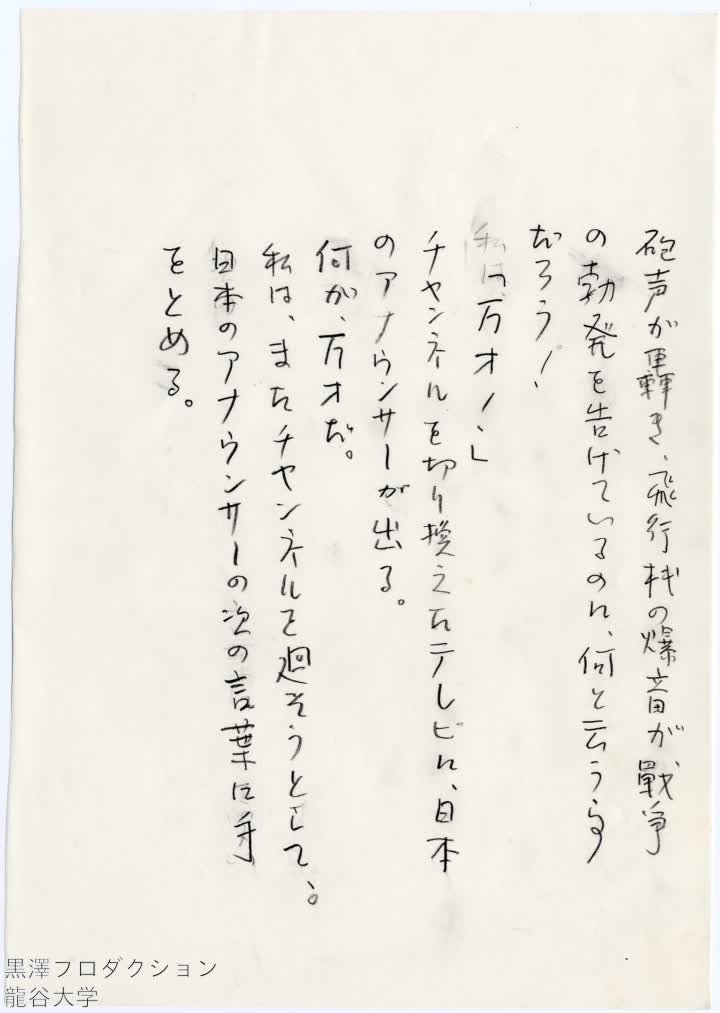 砲声が轟き、飛行機の爆音が戦争
の勃発を告げているのに、何と云う事
だろう！
私は万才！」
チャンネルを切り換えたテレビに、日本
のアナウンサーが出る。
何が、万才だ。
私は、またチャンネルを廻そうとして、。
日本のアナウンサーの次の言葉に手
をとめる。
黒澤プロダクション
龍谷大学